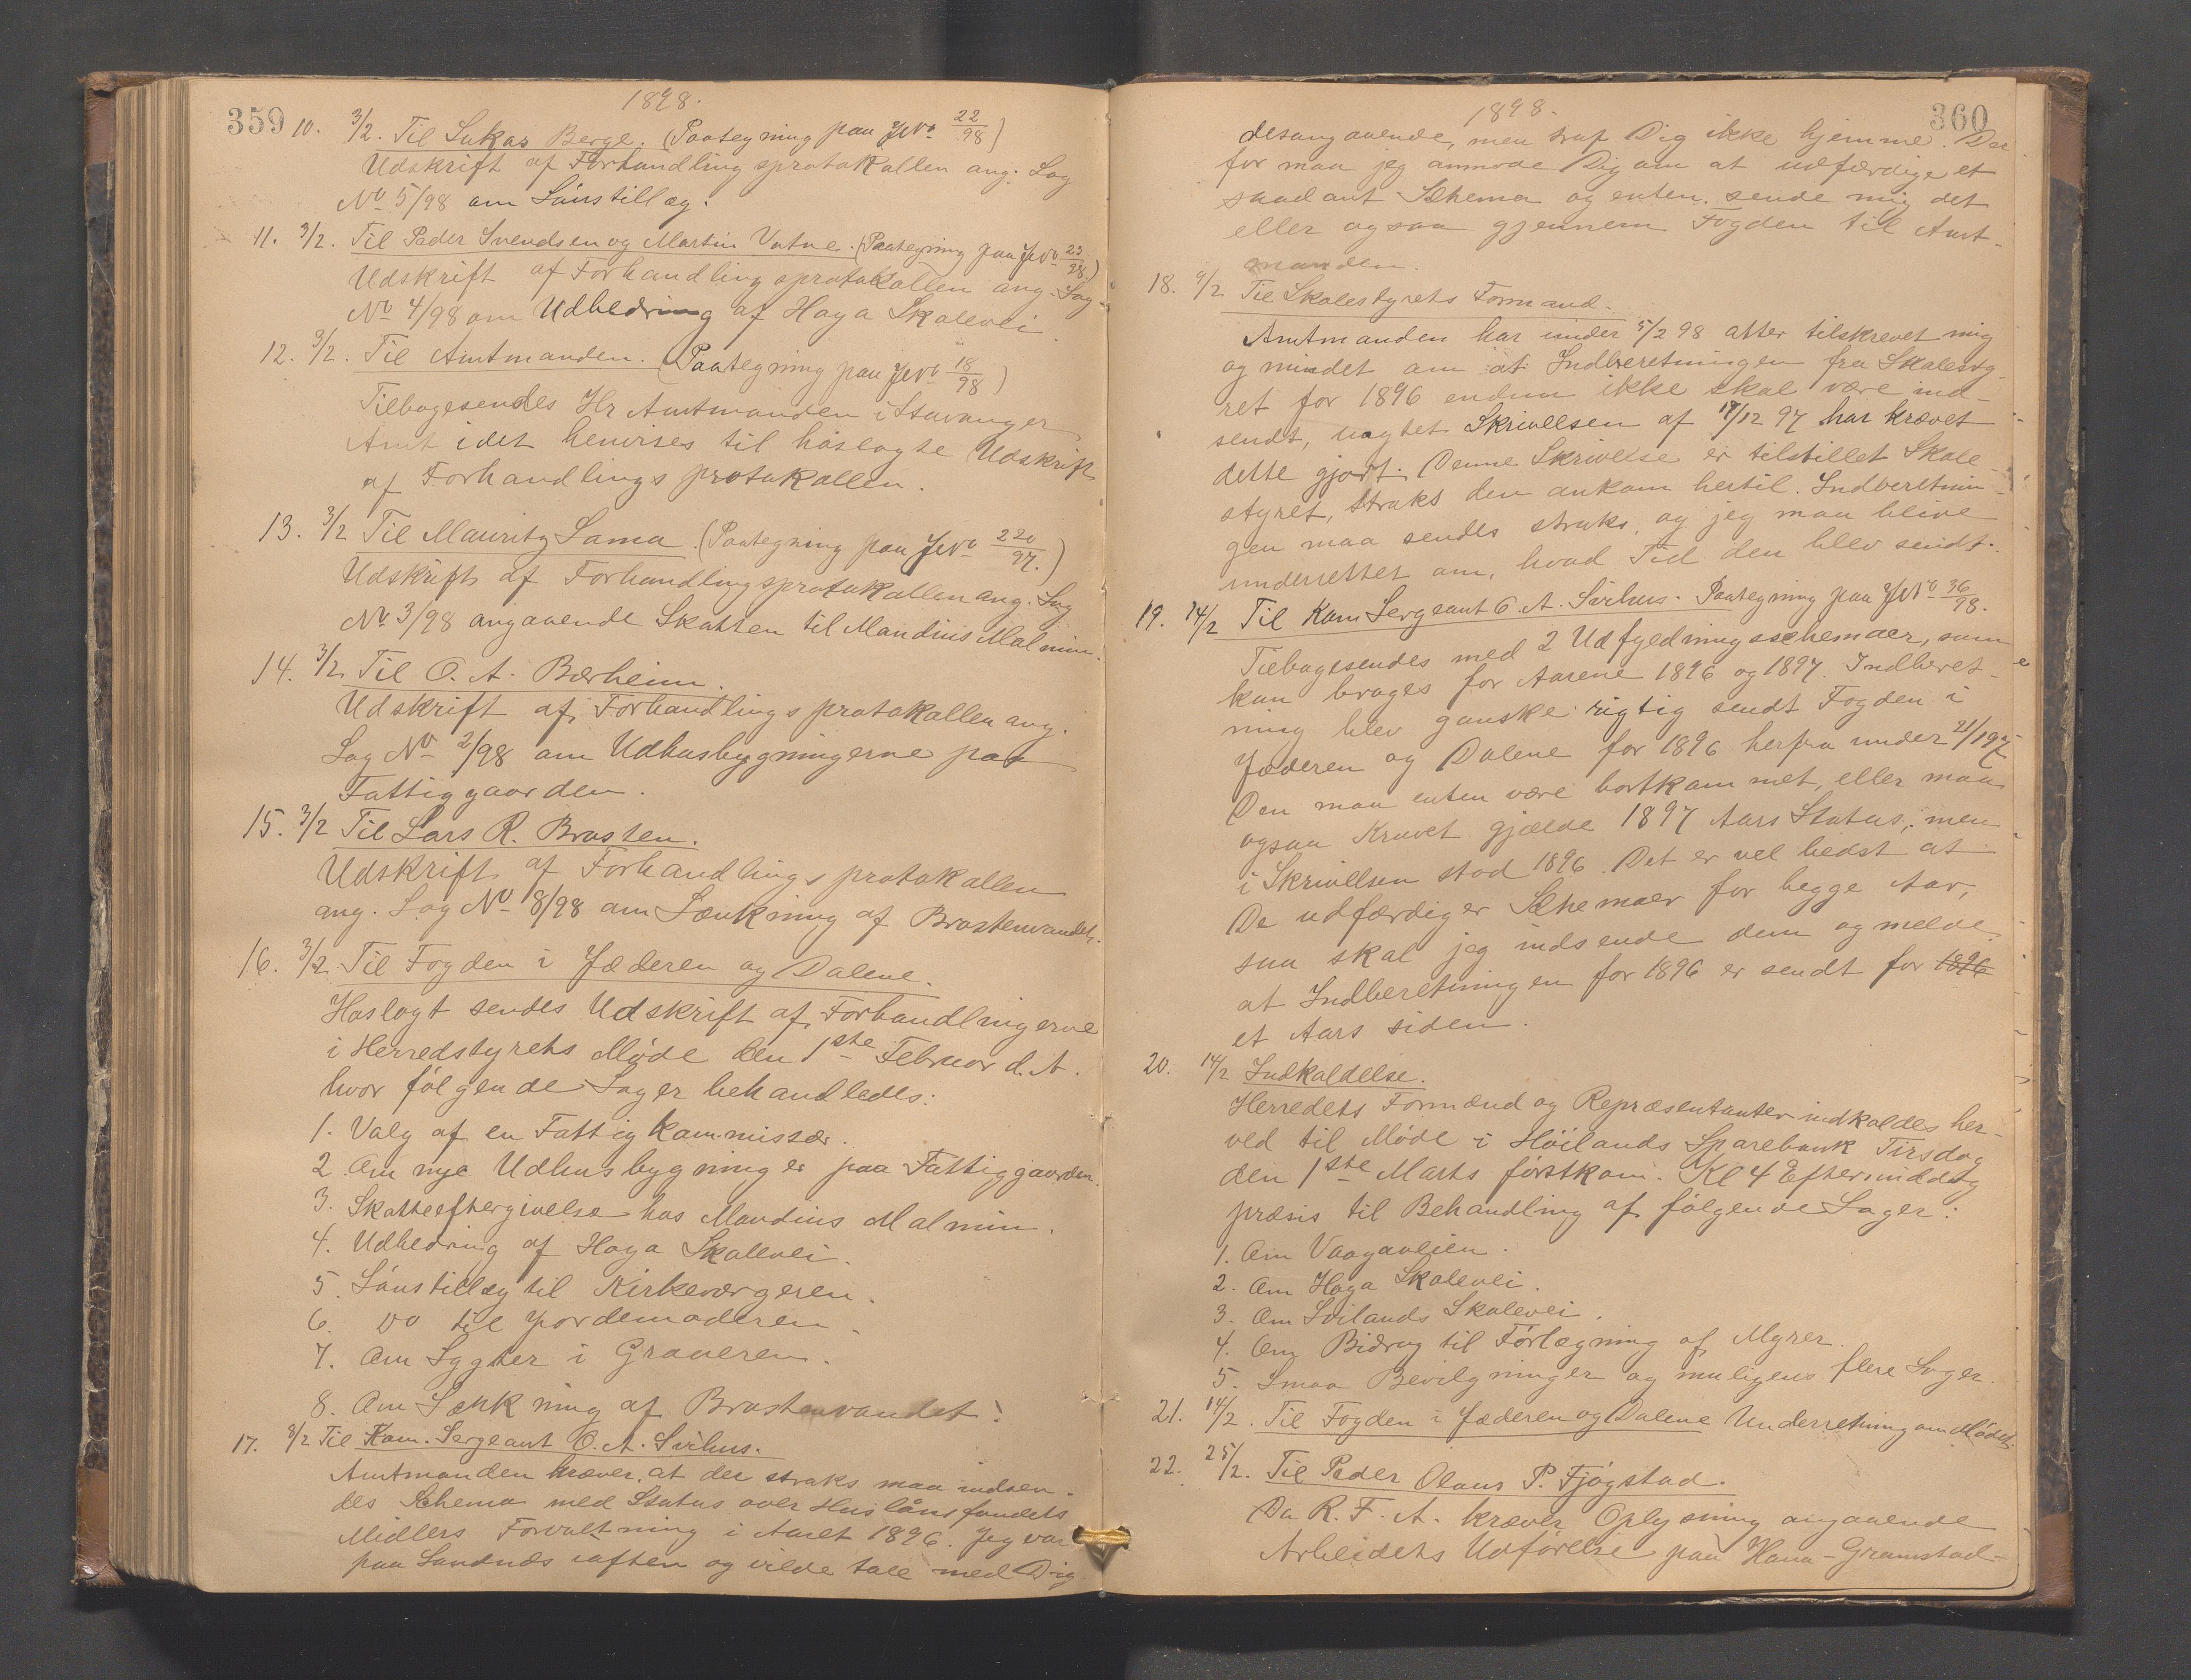 359
1898.
10. 3/2. Til Lukas Berge. (Paategning paa JNo 22/98)
Udskrift af Forhandlingsprotokollen ang. Sag
No 5/98 om Lønstillæg.
11. 3/2. Til Peder Svendsen og Martin Vatne. (Paategning paa JNo 23/98.)
Udskrift af Forhandlingsprotokollen ang. Sag
No 4/98 om Udbedring af Haga Skolevei
12. 3/2. Til Amtmanden. (Paategning paa JNo 18/98)
Tilbagesendes Hr Amtmanden i Stavanger
Amt idet henvises til hoslagte Udskrift
af Forhandlingsprotokollen.
13. 3/2 Til Mauritz Lama. (Paategning paa JNo 220/97.)
Udskrift af Forhandlingsprotokollen ang. Sag
No 3/98 angaaende Skatten til Maudius Malmin.
14. 3/2 Til O. A. Bærheim.
Udskrift af Forhandlingsprotokollen ang.
Sag No 2/98 om Udhusbygningerne paa
Fattiggaarden.
15. 3/2 Til Lars R. Brasten.
Udskrift af Forhandlingsprotokollen
ang. Sag No 8/98 om Sænkning af Brastenvandet.
16. 3/2 Til Fogden i Jæderen og Dalene.
Hoslagt sendes Udskrift af Forhandlingerne
i Herredstyrets Møde den 1ste Februar d. A.
hvor følgende Sager behandledes:
1. Valg af en Fattigkommissær.
2. Om nye Udhusbygninger paa Fattiggaarden.
3. Skatteeftergivelse hos Maudius Malmin.
4. Udbedring af Haga Skolevei.
5. Lønstillæg til Kirkeværgeren.
6. Do til Jordemoderen.
7. Om Lygter i Graveren.
8. Om Sænkning af Brastenvandet.
17. 8/2 Til Kom. Sergeant O. A. Svihus.
Amtmanden kræver, at der straks maa indsen-
des Schema med Status over Huslånsfondets
Midlers Forvaltning i Aaret 1896. Jeg var
paa Sandnæs iaften og vilde tale med Dig
360
1898.
desangaaende, men traf Dig ikke hjemme. Der
for maa jeg anmode Dig om at udfærdige et
saadant Schema og enten sende mig det
eller ogsaa gjennem Fogden til Amt-
manden.
18. 9/2 Til Skolestyrets Formand.
Amtmanden har under 5/2 98 atter tilskrevet mig
og mindet om at Indberetningen fra Skolesty-
ret for 1896 endnu ikke skal være ind-
sendt, uagtet Skrivelsen af 17/12 97 har krævet
dette gjort. Denne Skrivelse er tilstillet Skole-
styret, straks den ankom hertil. Indberetnin-
gen maa sendes straks, og jeg maa blive
underrettet om, hvad Tid den blev sendt.
19. 14/2 Til Kom Sergeant O. A. Svihus. Paategning paa JNo 36/98.
Tilbagesendes med 2 Udfyldningsschemaer, som
kan bruges for Aarene 1896 og 1897. Indberet-
ning blev ganske rigtig sendt Fogden i
Jæderen og Dalene for 1896 herfra under 21/1 97
Den maa enten være bortkommet, eller maa
ogsaa Kravet gjælde 1897 Aars Status, men
i Skrivelsen stod 1896. Det er vel bedst at
De udfærdiger Schemaer for begge Aar,
saa skal jeg indsende dem og melde
at Indberetningen for 1896 er sendt for 1896
et Aars siden.
20. 14/2 Indkaldelse.
Herredets Formænd og Repræsentanter indkaldes her-
ved til Møde i Høilands Sparebank Tirsdag
den 1ste Marts førstkom. Kl 4 Eftermiddag
præsis til Behandling af følgende Sager:
1. Om Vaagaveien.
2. Om Haga Skolevei.
3. Om Svilands Skolevei.
4. Om Bidrag til Tørlægning af Myrer.
5. Smaa Bevilgninger og muligens flere Sager.
21. 14/2. Til Fogden i Jæderen og Dalene Underretning om Mødet.
22. 25/2. Til Peder Olaus P. Fjøgstad.
Da R. F. A. kræver Oplysning angaaende
Arbeidets Udførelse paa Hana-Gramstad-